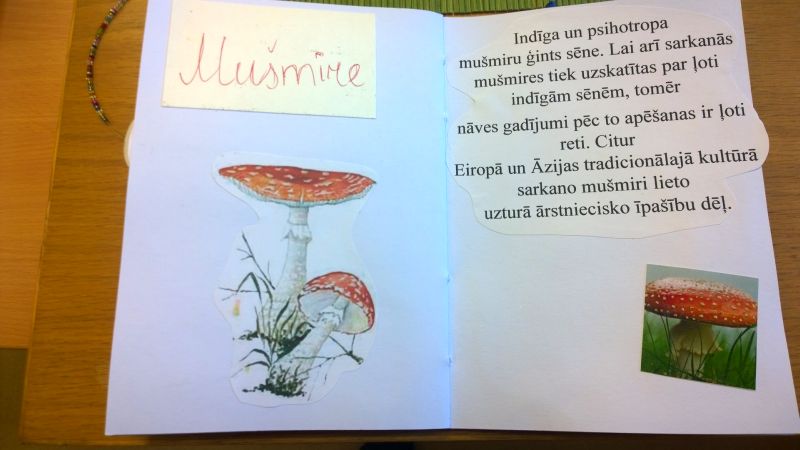 Mušmire
Indīga un psihotropa
mušmiru ģints sēne. Lai arī sarkanās
mušmires tiek uzskatītas par ļoti
indīgām sēnēm, tomēr
nāves gadījumi pēc to apēšanas ir ļoti
reti. Citur
Eiropā un Āzijas tradicionālajā kultūrā
sarkano mušmiri lieto
uzturā ārstniecisko īpašību dēļ.